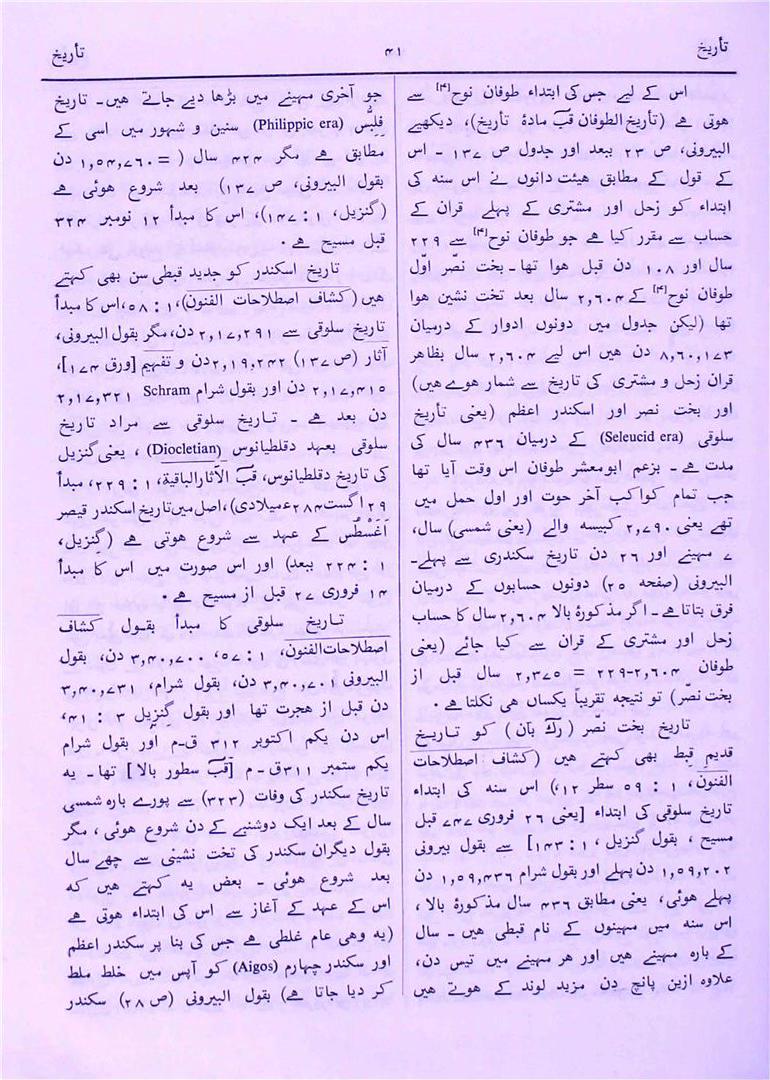 تأریخ
۴۱
تأریخ
اس کے لیے جس کی ابتداء طوفان نوح[۴] سے
ہوتی ہے (تأریخ الطوفان قب مادۂ تأریخ)، دیکھیے
البیرونی، ص ۲۳ ببعد اور جدول ص ۱۳۷ ۔ اس
کے قول کے مطابق ہیئت دانوں نے اس سنہ کی
ابتداء کو زحل اور مشتری کے پہلے قران کے
حساب سے مقرر کیا ہے جو طوفان نوح[۴] سے ۲۲۹
سال اور ۱۰۸ دن قبل ہوا تھا ۔ بخت نصّر اوّل
طوفان نوح[۴] کے ۲,۶۰۴ سال بعد تخت نشین ہوا
تھا (لیکن جدول میں دونوں ادوار کے درمیان
۸,۶۰,۱۷۳ دن ہیں اس لیے ۲,۶۰۴ سال بظاہر
قران زحل و مشتری کی تاریخ سے شمار ہوے ہیں)
اور بخت نصر اور اسکندر اعظم (یعنی تأریخ
سلوقی (Seleucid era) کے درمیان ۴۳۶ سال کی
مدت ہے ۔ بزعم ابومعشر طوفان اس وقت آیا تھا
جب تمام کواکب آخر حوت اور اول حمل میں
تھے یعنی ۲,۷۹۰ کبیسہ والے (یعنی شمسی) سال،
۷ مہینے اور ۲۶ دن تاریخ سکندری سے پہلے ۔
البیرونی (صفحہ ۲۵) دونوں حسابوں کے درمیان
فرق بتاتا ہے ۔ اگر مذکورۂ بالا ۲,۶۰۴ سال کا حساب
زحل اور مشتری کے قران سے کیا جائے (یعنی
طوفان ۲,۶۰۴-۲۲۹ = ۲,۳۷۵ سال قبل از
بخت نصّر) تو نتیجہ تقریباً یکساں ہی نکلتا ہے ۔
تاریخ بخت نصّر (رک بآن) کو تاریخ
قدیم قبط بھی کہتے ہیں (کشاف اصطلاحات
الفنون، ۱ : ۵۹ سطر ۱۲)، اس سنہ کی ابتداء
تاریخ سلوقی کی ابتداء [یعنی ۲۶ فروری ۷۴۷ قبل
مسیح ، بقول گنزیل ، ۱ : ۱۴۳] سے بقول بیرونی
۱,۵۹,۲۰۲ دن پہلے اور بقول شرام ۱,۵۹,۴۳۶ دن
پہلے ہوئی، یعنی مطابق ۴۳۶ سال مذکورۂ بالا ،
اس سنہ میں مہینوں کے نام قبطی ہیں ۔ سال
کے بارہ مہینے ہیں اور ہر مہینے میں تیس دن،
علاوہ ازین پانچ دن مزید لوند کے ہوتے ہیں
جو آخری مہینے میں بڑھا دیے جاتے ہیں ۔ تاریخ
فِلِپُّس (Philippic era) سنین و شہور میں اسی کے
مطابق ہے مگر ۴۲۴ سال ( = ۱,۵۴,۷۶۰ دن
بقول البیرونی، ص ۱۳۷) بعد شروع ہوئی ہے
(گنزیل، ۱ : ۱۴۷)، اس کا مبدأ ۱۲ نومبر ۳۲۴
قبل مسیح ہے ۔
تاریخ اسکندر کو جدید قبطی سن بھی کہتے
ہیں (کشاف اصطلاحات الفنون)، ۱ : ۵۸، اس کا مبدأ
تاریخ سلوقی سے ۲,۱۷,۲۹۱ دن، مگر بقول البیرونی،
آثار (ص ۱۳۷) ۲,۱۹,۲۴۲ دن و تفہیم [ورق ۱۷۴]،
۲,۱۷,۴۱۵ دن اور بقول شرام Schram ۲,۱۷,۳۲۱
دن بعد ہے ۔ تاریخ سلوقی سے مراد تاریخ
سلوقی بعہد دقلطیانوس (Diocletian) ، یعنی گنزیل
کی تاریخ دقلطیانوس، قب الآثار الباقیة، ۱ : ۲۲۹، مبدأ
۲۹ اگست ۲۸۴ء میلادی)، اصل میں تاریخ اسکندر قیصر
اَغَسْطُس کے عہد سے شروع ہوتی ہے (گنزیل،
۱ : ۲۲۴ ببعد) اور اس صورت میں اس کا مبدأ
۱۴ فروری ۲۷ قبل از مسیح ہے ۔
تاریخ سلوقی کا مبدأ بقول کشاف
اصطلاحات الفنون، ۱ : ۵۷، ۳,۴۰,۷۰۰ دن، بقول
البیرونی ۳,۴۰,۷۰۱ دن، بقول شرام، ۳,۴۰,۷۳۱
دن قبل از ہجرت تھا اور بقول گنزیل ۳ : ۴۱،
اس دن یکم اکتوبر ۳۱۲ ق-م اور بقول شرام
یکم ستمبر ۳۱۱ ق - م [قب سطور بالا] تھا ۔ یہ
تاریخ سکندر کی وفات (۳۲۳) سے پورے بارہ شمسی
سال کے بعد ایک دوشنبے کے دن شروع ہوئی ، مگر
بقول دیگران سکندر کی تخت نشینی سے چھے سال
بعد شروع ہوئی ۔ بعض یہ کہتے ہیں کہ
اس کے عہد کے آغاز سے اس کی ابتداء ہوتی ہے
(یہ وہی عام غلطی ہے جس کی بنا پر سکندر اعظم
اور سکندر چہارم (Aigos) کو آپس میں خلط ملط
کر دیا جاتا ہے) بقول البیرونی (ص ۲۸) سکندر